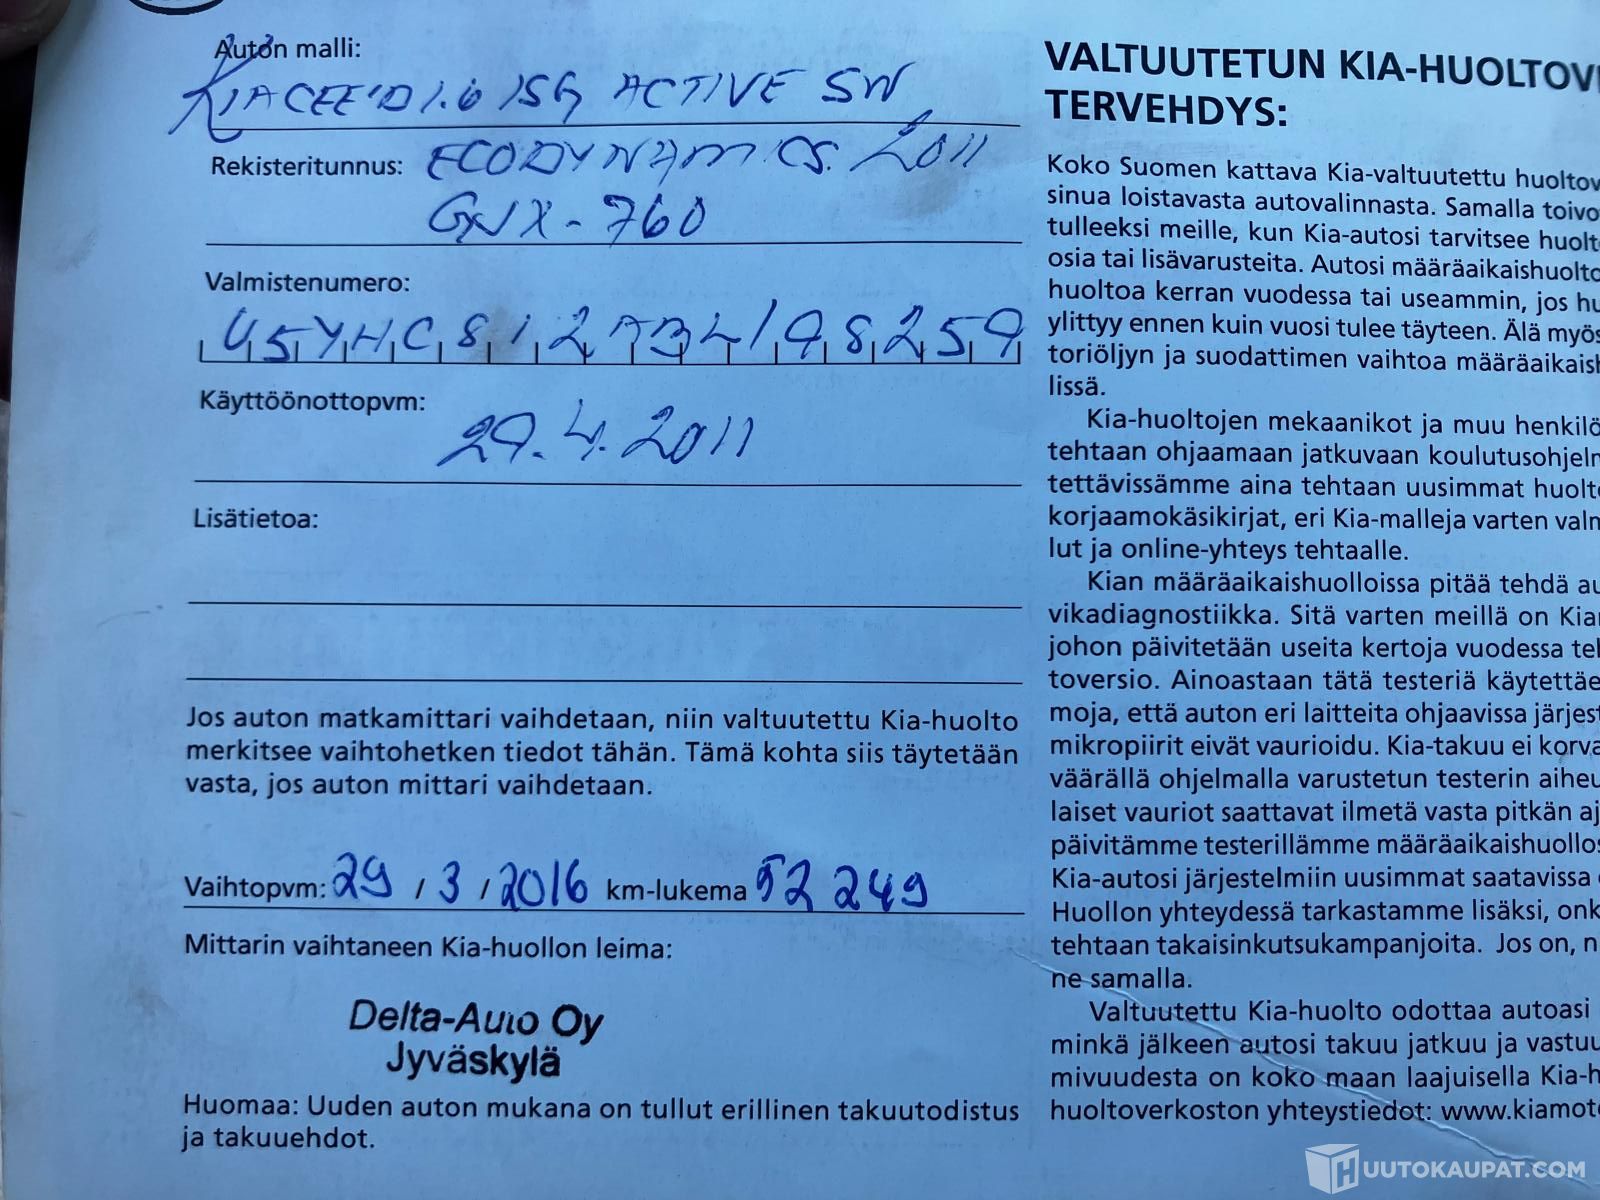 Auton malli:
KIA CEE'D 1.6 ISG ACTIVE SW
Rekisteritunnus: ECODYNAMICS. 2011
GNX-760
Valmistenumero:
U5YHC812ABL198259
Käyttöönottopvm:
29.4.2011
Lisätietoa:
Jos auton matkamittari vaihdetaan, niin valtuutettu Kia-huolto
merkitsee vaihtohetken tiedot tähän. Tämä kohta siis täytetään
vasta, jos auton mittari vaihdetaan.
Vaihtopvm: 29 / 3 / 2016 km-lukema 52 249
Mittarin vaihtaneen Kia-huollon leima:
Delta-Auto Oy
Jyväskylä
Huomaa: Uuden auton mukana on tullut erillinen takuutodistus
ja takuuehdot.
VALTUUTETUN KIA-HUOLTOV
TERVEHDYS:
Koko Suomen kattava Kia-valtuutettu huoltov
sinua loistavasta autovalinnasta. Samalla toivo
tulleeksi meille, kun Kia-autosi tarvitsee huolt
osia tai lisävarusteita. Autosi määräaikaishuolto
huoltoa kerran vuodessa tai useammin, jos hu
ylittyy ennen kuin vuosi tulee täyteen. Älä myös
toriöljyn ja suodattimen vaihtoa määräaikaish
lissä.
Kia-huoltojen mekaanikot ja muu henkilö
tehtaan ohjaamaan jatkuvaan koulutusohjelm
tettävissämme aina tehtaan uusimmat huolto
korjaamokäsikirjat, eri Kia-malleja varten valm
lut ja online-yhteys tehtaalle.
Kian määräaikaishuolloissa pitää tehdä au
vikadiagnostiikka. Sitä varten meillä on Kian
johon päivitetään useita kertoja vuodessa teh
toversio. Ainoastaan tätä testeriä käytettäe
moja, että auton eri laitteita ohjaavissa järjest
mikropiirit eivät vaurioidu. Kia-takuu ei korva
väärällä ohjelmalla varustetun testerin aiheu
laiset vauriot saattavat ilmetä vasta pitkän aj
päivitämme testerillämme määräaikaishuollos
Kia-autosi järjestelmiin uusimmat saatavissa
Huollon yhteydessä tarkastamme lisäksi, onk
tehtaan takaisinkutsukampanjoita. Jos on, n
ne samalla.
Valtuutettu Kia-huolto odottaa autoasi
minkä jälkeen autosi takuu jatkuu ja vastuu
mivuudesta on koko maan laajuisella Kia-h
huoltoverkoston yhteystiedot: www.kiamoto
HUUTOKAUPAT.COM